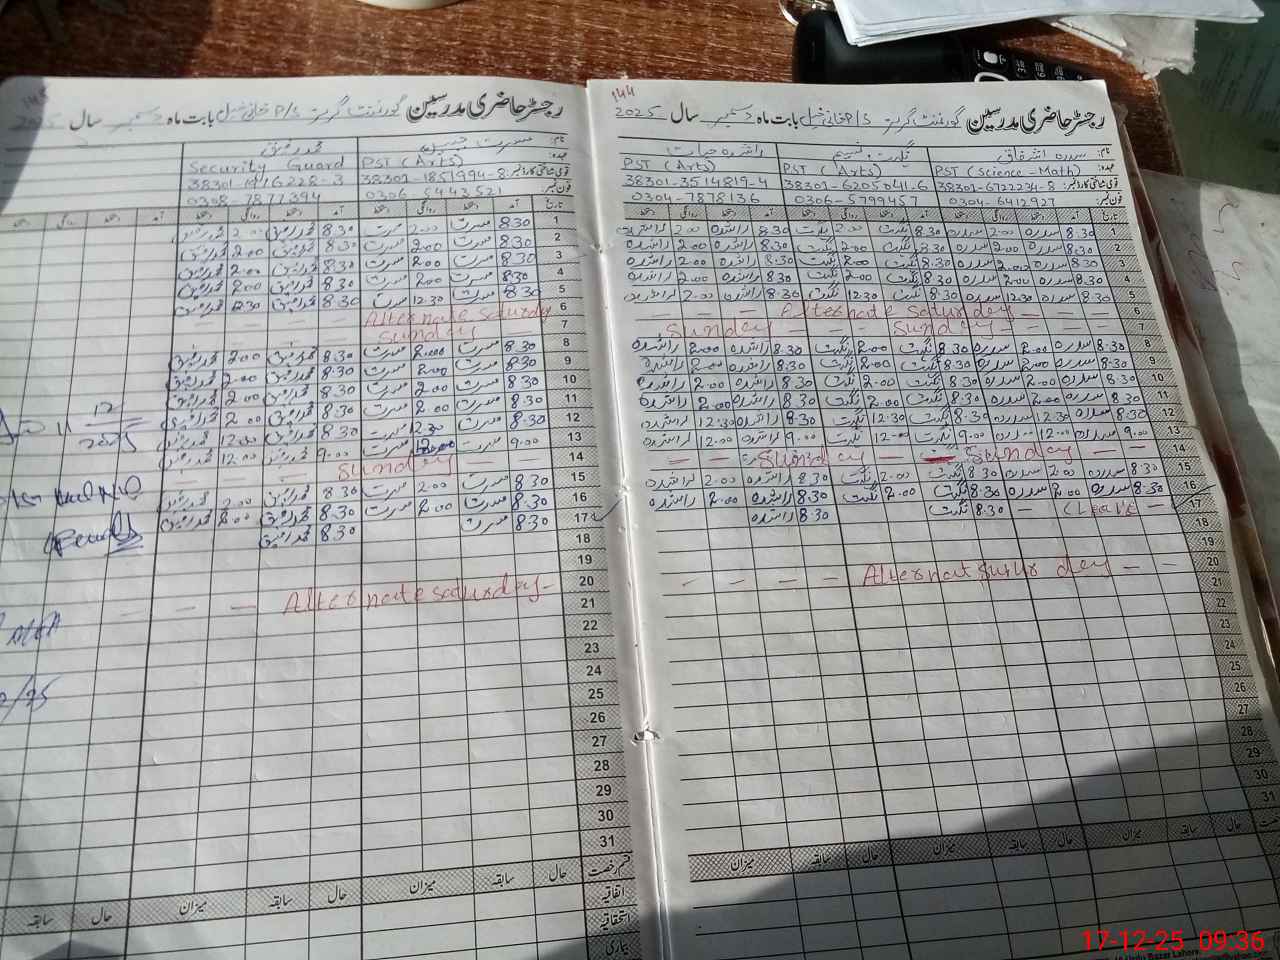 144
رجسٹر حاضری مدرسین گورنمنٹ گرلز P/S خانی خیل بابت ماہ دسمبر سال 2025
نام: سدرہ اشفاق نگہت نسیم راشدہ حیات
عہدہ: PST (Science - Math) PST (Arts) PST (Arts)
قومی شناختی کارڈ نمبر: 38301-6722234-8 38301-6205041-6 38301-3514819-4
فون نمبر: 0304-6412927 0306-5799457 0304-7878136
تاریخ آمد دستخط روانگی دستخط آمد دستخط روانگی دستخط آمد دستخط روانگی دستخط
1 8.30 سدرہ 2.00 سدرہ 8.30 نگہت 2.00 نگہت 8.30 راشدہ 2.00 راشدہ
2 8.30 سدرہ 2.00 سدرہ 8.30 نگہت 2.00 نگہت 8.30 راشدہ 2.00 راشدہ
3 8.30 سدرہ 2.00 سدرہ 8.30 نگہت 2.00 نگہت 8.30 راشدہ 2.00 راشدہ
4 8.30 سدرہ 2.00 سدرہ 8.30 نگہت 2.00 نگہت 8.30 راشدہ 2.00 راشدہ
5 8.30 سدرہ 12.30 سدرہ 8.30 نگہت 12.30 نگہت 8.30 راشدہ 12.30 راشدہ
6 Alternate saturday
7 Sunday Sunday
8 8.30 سدرہ 2.00 سدرہ 8.30 نگہت 2.00 نگہت 8.30 راشدہ 2.00 راشدہ
9 8.30 سدرہ 2.00 سدرہ 8.30 نگہت 2.00 نگہت 8.30 راشدہ 2.00 راشدہ
10 8.30 سدرہ 2.00 سدرہ 8.30 نگہت 2.00 نگہت 8.30 راشدہ 2.00 راشدہ
11 8.30 سدرہ 2.00 سدرہ 8.30 نگہت 2.00 نگہت 8.30 راشدہ 2.00 راشدہ
12 8.30 سدرہ 12.30 سدرہ 8.30 نگہت 12.30 نگہت 8.30 راشدہ 12.30 راشدہ
13 9.00 سدرہ 12.00 سدرہ 9.00 نگہت 12.00 نگہت 9.00 راشدہ 12.00 راشدہ
14 Sunday Sunday
15 8.30 سدرہ 2.00 سدرہ 8.30 نگہت 2.00 نگہت 8.30 راشدہ 2.00 راشدہ
16 8.30 سدرہ 2.00 سدرہ 8.30 نگہت 2.00 نگہت 8.30 راشدہ 2.00 راشدہ
17 Leave 8.30 نگہت 8.30 راشدہ
18
19
20 Alternat Satur day
21
22
23
24
25
26
27
28
29
30
31
حال سابقہ میزان حال سابقہ میزان حال سابقہ میزان
رجسٹر حاضری مدرسین گورنمنٹ گرلز P/S خانی خیل بابت ماہ دسمبر سال 2025
نام: مسرت نسیم محمد رفیق
عہدہ: PST (Arts) Security Guard
قومی شناختی کارڈ نمبر: 38301-1851994-8 38301-1916228-3
فون نمبر: 0306-6443521 0308-7877394
تاریخ آمد دستخط روانگی دستخط آمد دستخط روانگی دستخط آمد دستخط روانگی دستخط
1 8.30 مسرت 2.00 مسرت 8.30 محمد رفیق 2.00 محمد رفیق
2 8.30 مسرت 2.00 مسرت 8.30 محمد رفیق 2.00 محمد رفیق
3 8.30 مسرت 2.00 مسرت 8.30 محمد رفیق 2.00 محمد رفیق
4 8.30 مسرت 2.00 مسرت 8.30 محمد رفیق 2.00 محمد رفیق
5 8.30 مسرت 12.30 مسرت 8.30 محمد رفیق 12.30 محمد رفیق
6 Alternate saturday
7 sunday
8 8.30 مسرت 2.00 مسرت 8.30 محمد رفیق 2.00 محمد رفیق
9 8.30 مسرت 2.00 مسرت 8.30 محمد رفیق 2.00 محمد رفیق
10 8.30 مسرت 2.00 مسرت 8.30 محمد رفیق 2.00 محمد رفیق
11 8.30 مسرت 2.00 مسرت 8.30 محمد رفیق 2.00 محمد رفیق
12 8.30 مسرت 12.30 مسرت 8.30 محمد رفیق 12.30 محمد رفیق
13 9.00 مسرت 12.00 مسرت 9.00 محمد رفیق 12.00 محمد رفیق
14 Sunday
15 8.30 مسرت 2.00 مسرت 8.30 محمد رفیق 2.00 محمد رفیق
16 8.30 مسرت 2.00 مسرت 8.30 محمد رفیق 2.00 محمد رفیق
17 8.30 مسرت 8.30 محمد رفیق
18
19
20
21 Alternate saturday
22
23
24
25
26
27
28
29
30
31
قسم رخصت حال سابقہ میزان حال سابقہ میزان حال سابقہ
اتفاقیہ
استحقاقیہ
بیماری
11 12/2025
17-12-25 09:36